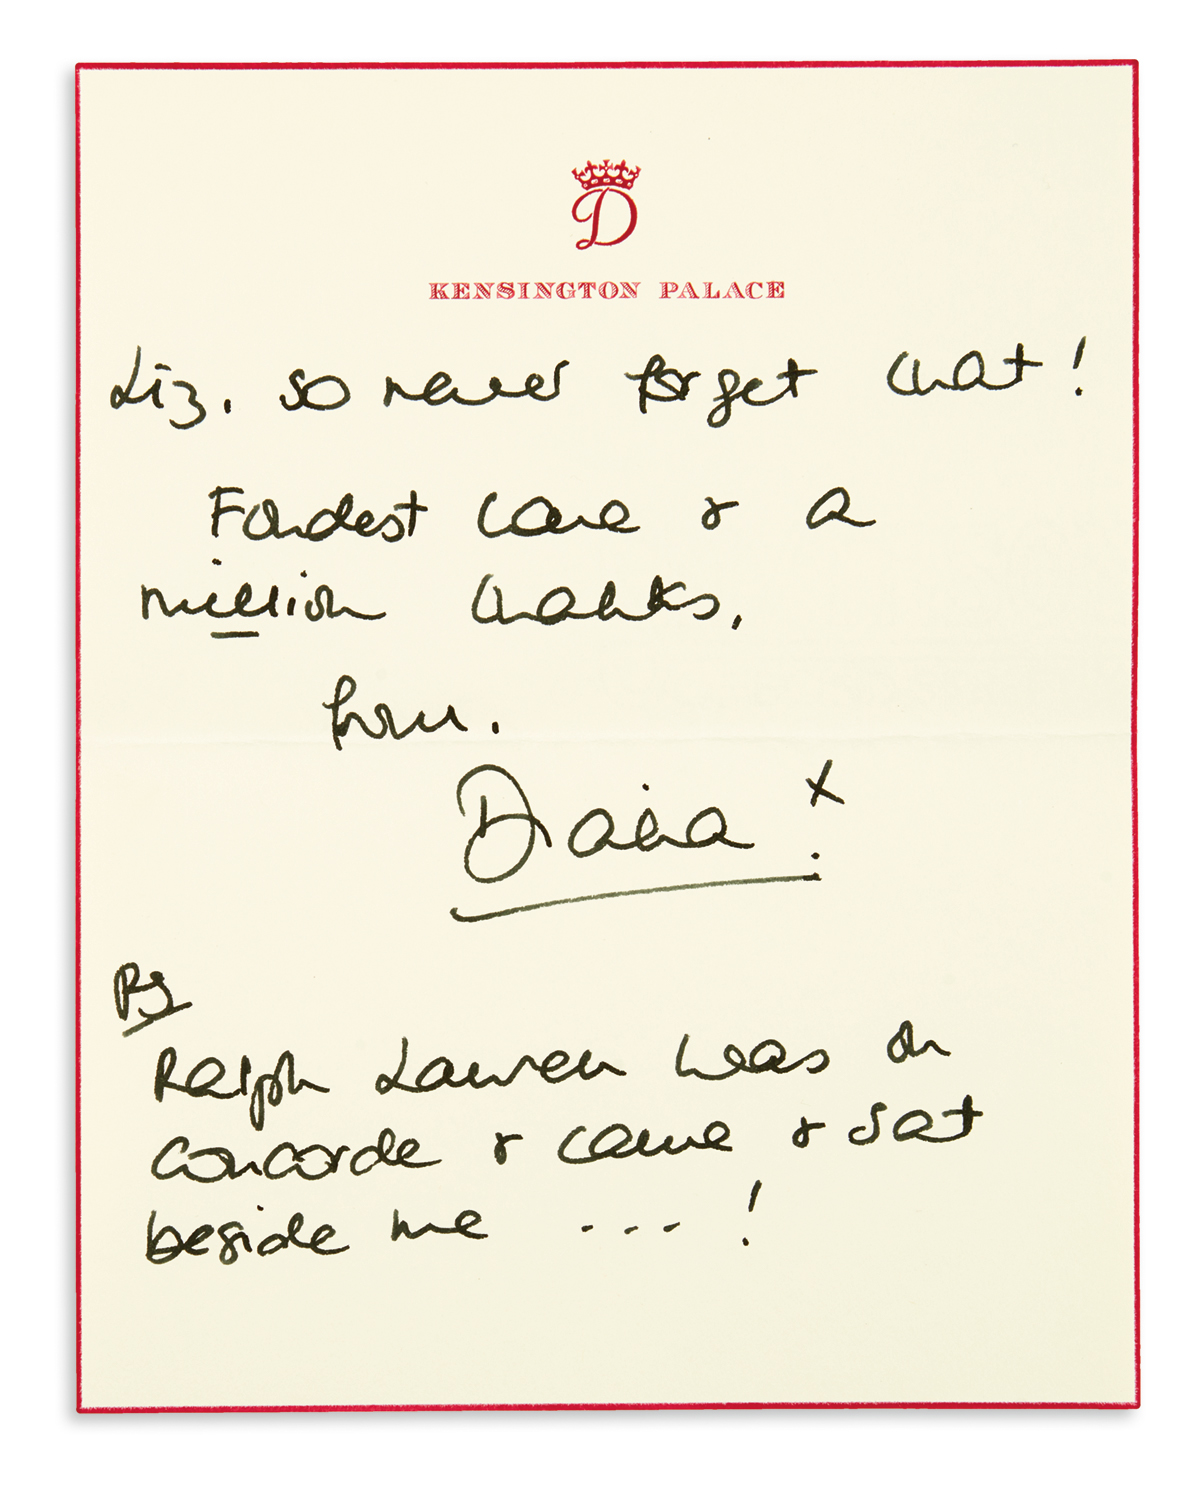 D
KENSINGTON PALACE
Liz, so never forget that!
Fondest love & a
million thanks,
from.
Diana x
PS
Ralph Lauren was on
Concorde & came & sat
beside me ---!